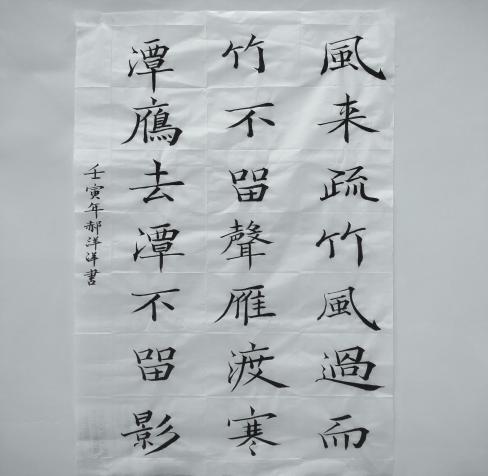 風来疏竹風過而
竹不留聲雁渡寒
潭鴈去潭不留影
壬寅年郝洋洋書